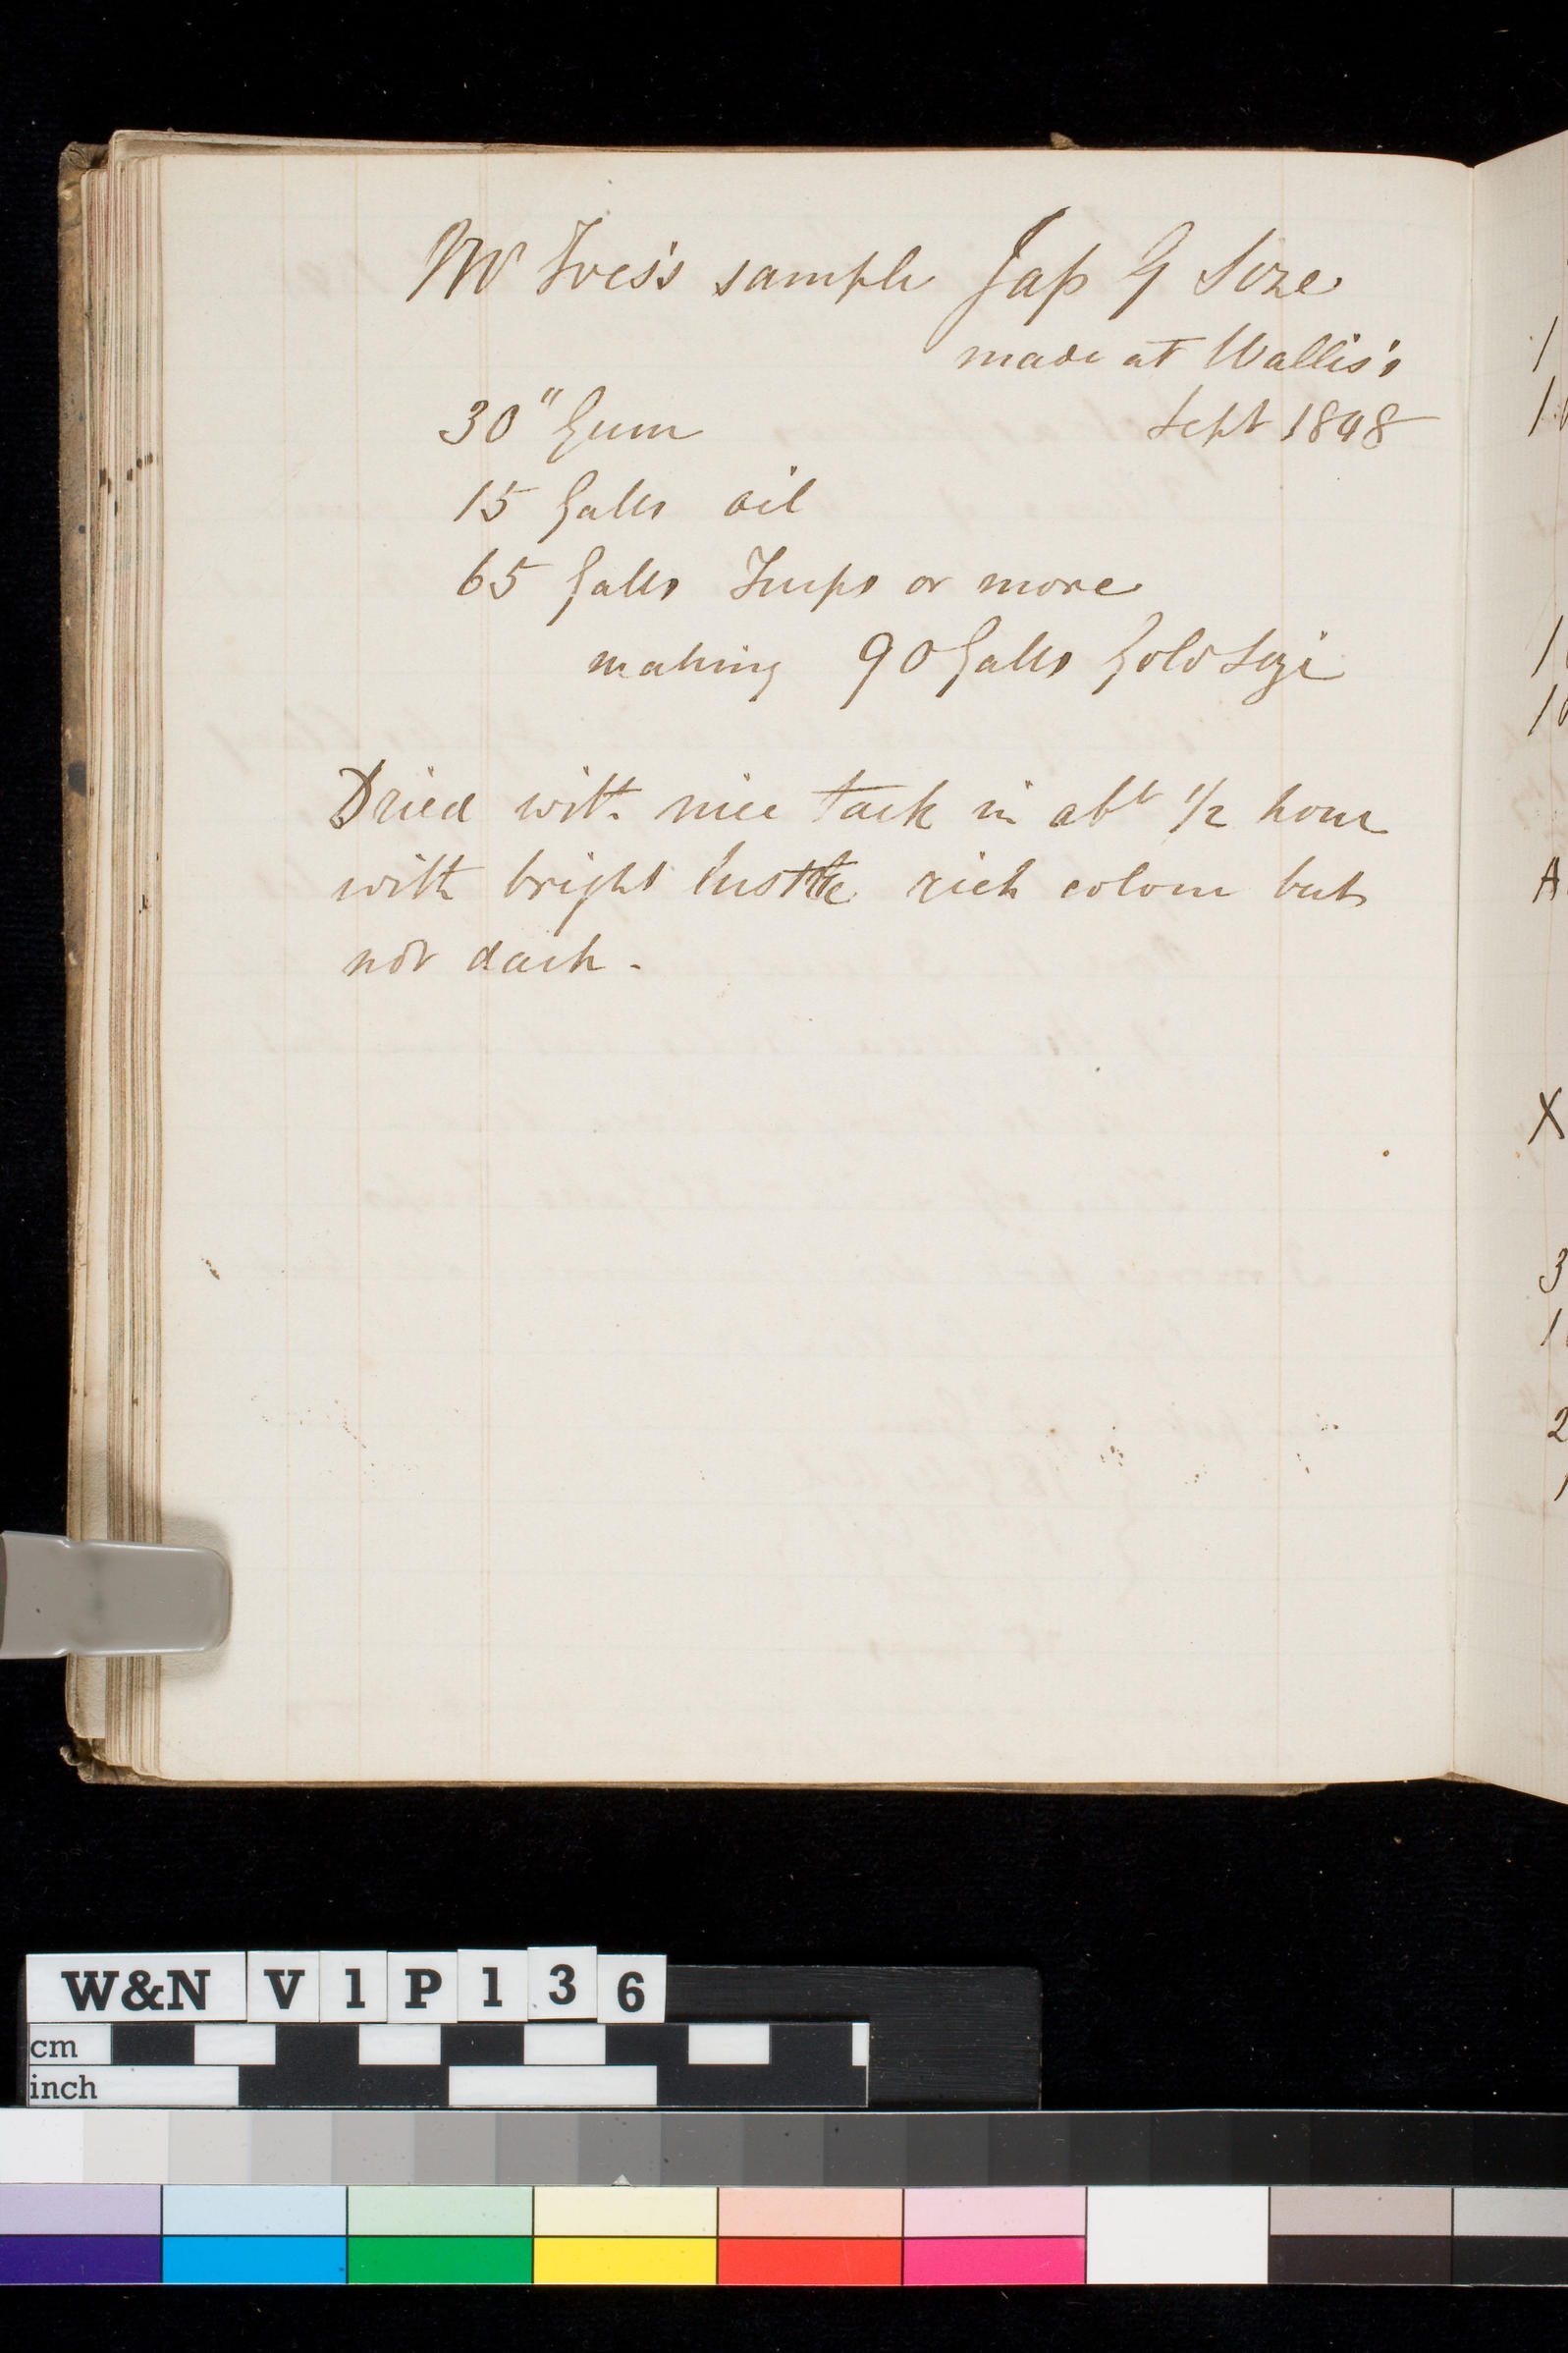 Mr Ives's sample Jap G Size
made at Wallis's
30" Gum Sept 1898
15 Galls oil
65 Galls Turps or more
making 90 Galls Gold Size
Dried with nice tack in abt 1/2 hour
with bright lustre rich colour but
not dark.
1
1
1
A
X
3
1
2
1
W&N V1P136
cm
inch